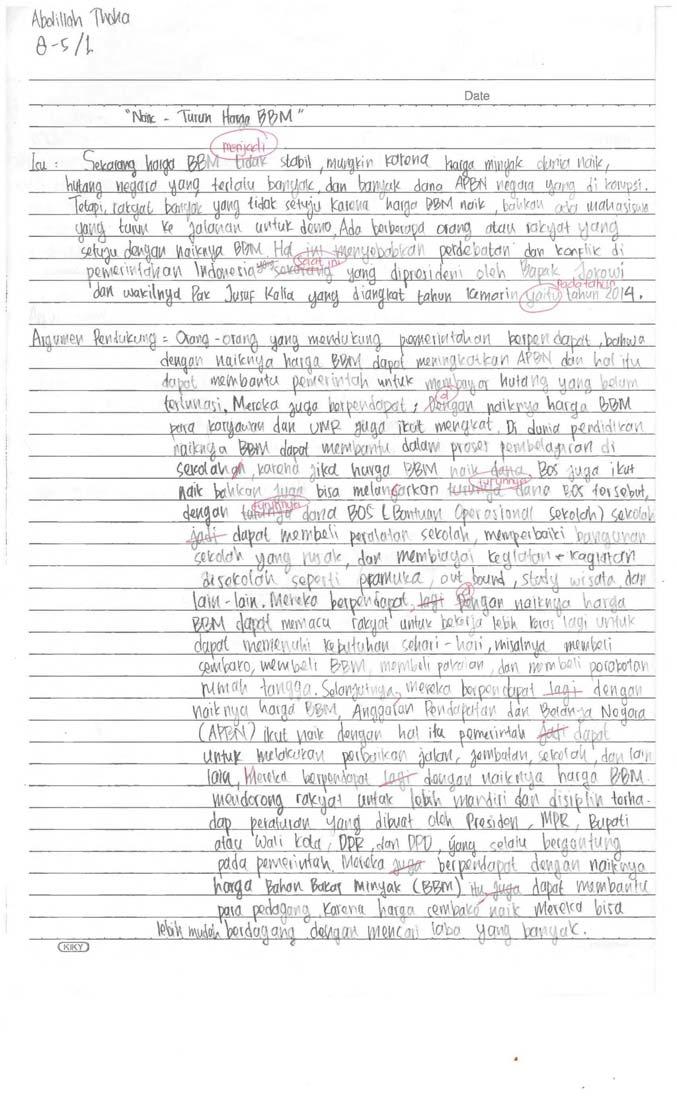 Abdillah Thoha
8-5/1
Date
"Naik - Turun Harga BBM"
menjadi
Isu : Sekarang harga BBM tidak stabil, mungkin karena harga minyak dunia naik,
hutang negara yang terlalu banyak, dan banyak dana APBN negara yang di korupsi.
Tetapi, rakyat banyak yang tidak setuju karena harga BBM naik, bahkan ada mahasiswa
yang turun ke jalanan untuk demo, Ada beberapa orang atau rakyat yang
setuju dengan naiknya BBM. Hal ini menyebabkan perdebatan dan konflik di
saat ini
pemerintahan Indonesia sekarang yang diprosideni oleh Bapak Jokowi
pada tahun
dan wakilnya Pak Jusuf Kalla yang diangkat tahun kemarin yaitu tahun 2014.
Argumen Pendukung = Orang-orang yang mendukung pemerintahan berpendapat, bahwa
dengan naiknya harga BBM dapat meningkatkan APBN dan hal itu
dapat membantu pemerintah untuk membayar hutang yang belum
d
terlunasi. Mereka juga berpendapat, Dengan naiknya harga BBM
para karyawan dan UMR juga ikut mengkat. Di dunia perdidikan
naiknya BBM dapat membantu dalam proses pembelajaran di
sekolah, karena jika harga BBM naik dana Bos juga ikut
turunnya
naik bahkan juga bisa melancarkan turunya dana BOS tersebut,
turunnya
dengan turunya dana BOS (Bantuan Operasional Sekolah) sekolah
jadi dapat membeli peralatan sekolah, memperbaiki bangunan
sekolah yang rusak, dan membiayai kegiatan - kagiatan
disekolah seperti pramuka, out bound, study wisata, dan
d
lain-lain. Mereka berpendapat, lagi Dengan naiknya harga
BBM dapat memacu rakyat untuk bekerja lebih keras lagi untuk
dapat memenuhi kebutuhan sehari-hari, misalnya membeli
sembako, membeli BBM, membeli pakaian, dan membeli perabotan
rumah tangga. Selanjutnya, mereka berpendapat lagi dengan
naiknya harga BBM, Anggaran Pendapatan dan Belanja Negara
(APBN) ikut naik dengan hal itu pemerintah jadi dapat
untuk melakukan perbaikan jalan, jembatan, sekolah, dan lain
lain, Mereka berpendapat lagi dengan naiknya harga BBM.
mendorong rakyat untuk lebih mandiri dan disiplin terha-
dap peraturan yang dibuat oleh Presiden, MPR, Bupati
atau Wali kota, DPR, dan DPD, yang selalu bergantung
pada pemerintah. Mereka juga berpendapat dengan naiknya
harga Bahan Bakar Minyak (BBM) itu juga dapat membantu
para pedagang. Karena harga sembako naik mereka bisa
lebih mudah berdagang dengan mencari laba yang banyak.
KIKY